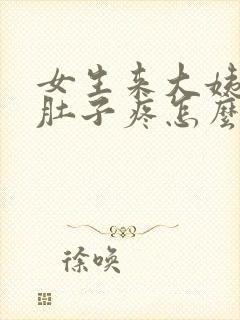 女生来大姨
肚子疼怎麼
徐唤